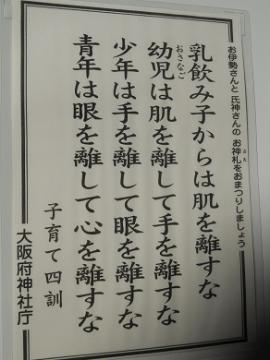 お伊勢さんと 氏神さんの お神札をおまつりしましょう
乳飲み子からは肌を離すな
幼児は肌を離して手を離すな
少年は手を離して眼を離すな
青年は眼を離して心を離すな
子育て四訓
大阪府神社庁